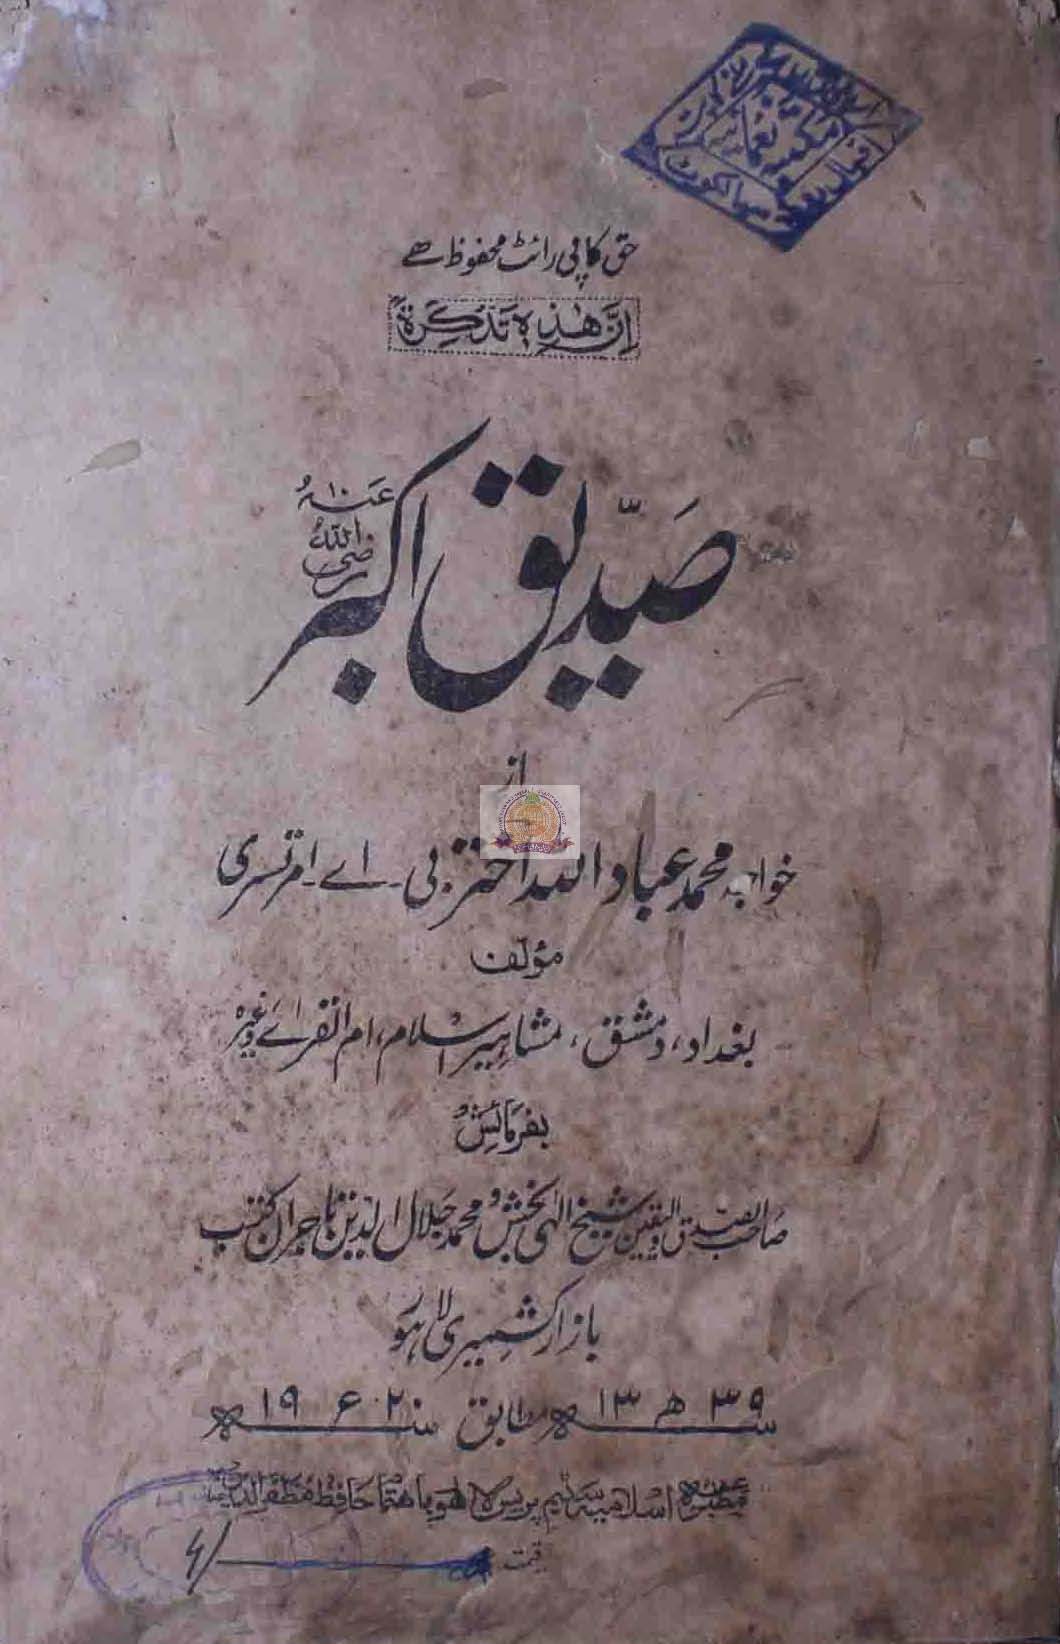 مکتبہ نعمانیہ
اقبال روڈ سیالکوٹ
حق کاپی رائٹ محفوظ ہے
اِنَّ هٰذِهٖ تَذْكِرَةٌ
صدیق اکبر رضی اللہ عنہ
از
خواجہ محمد عباد اللہ اختر بی۔ اے۔ امرتسری
مؤلف
بغداد، دمشق، مشاہیر اسلام، ام القرےٰ وغیرہ
بفرمائش
صاحب الصدق والیقین شیخ الٰہی بخش و محمد جلال الدین تاجران کتب
بازار کشمیری لاہور
۱۳۳۹ھ مطابق سنہ ۱۹۲۰ء
مطبوعہ اسلامیہ سٹیم پریس لاہور باہتمام حافظ مظفر الدین
قیمت